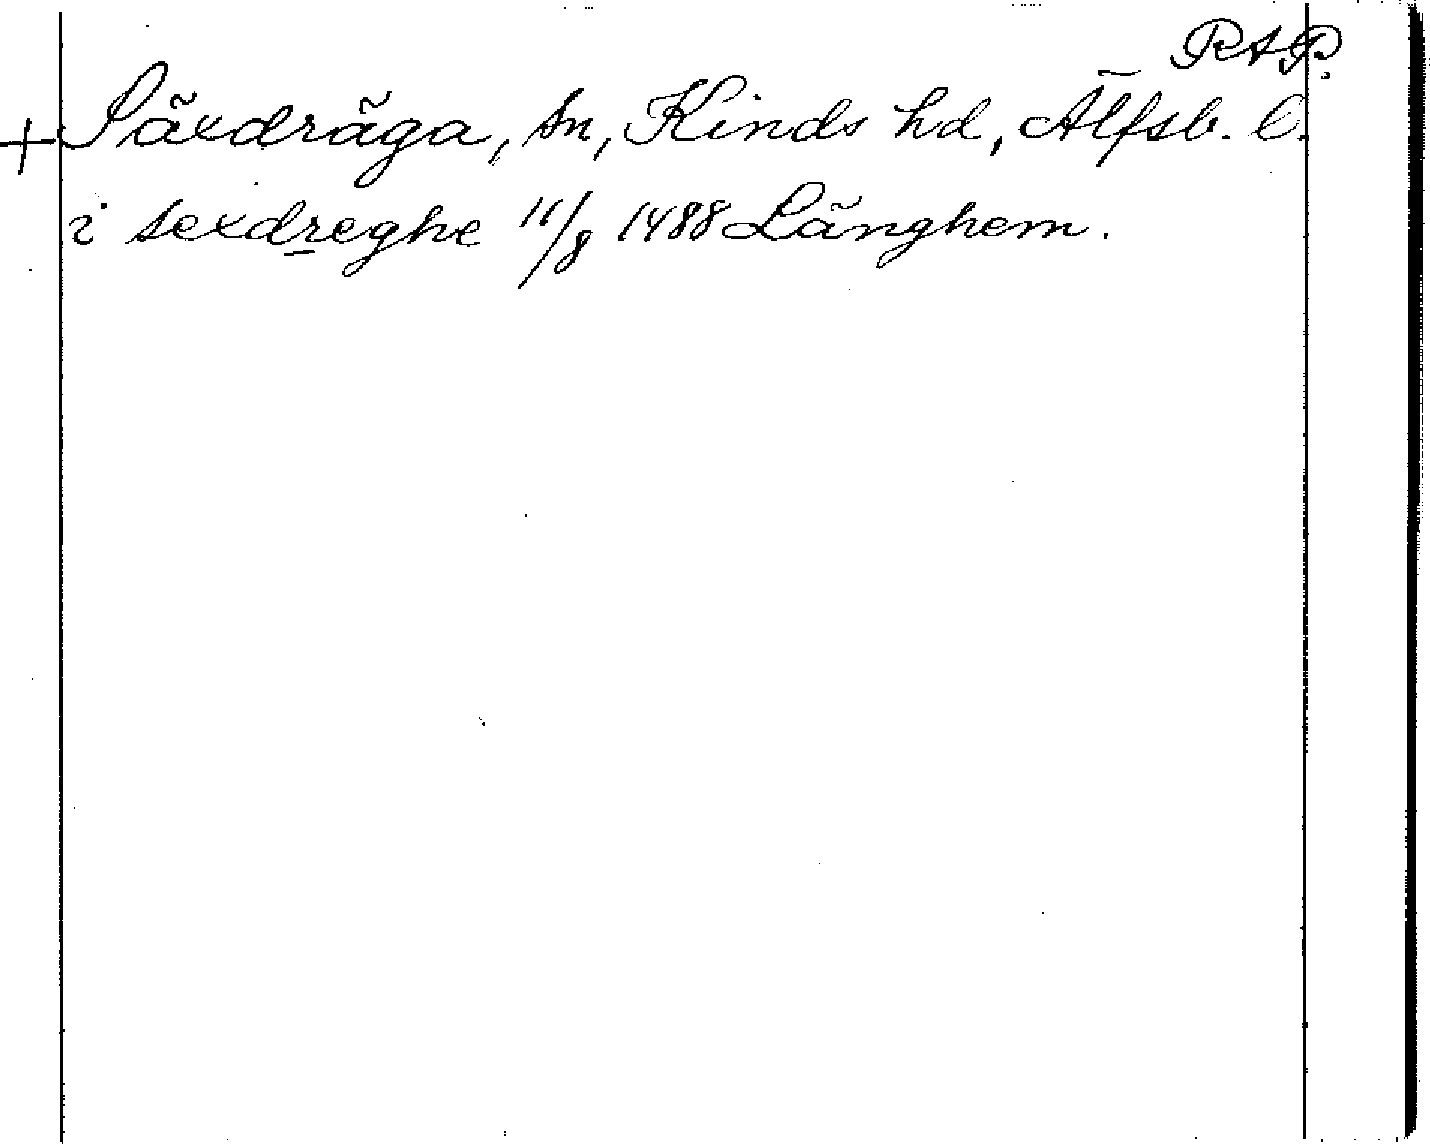 RAP.
+ Säxdräga, sn, Kinds hd, Älfsb. l.
i sexdreghe 11/8 1488 Länghem.